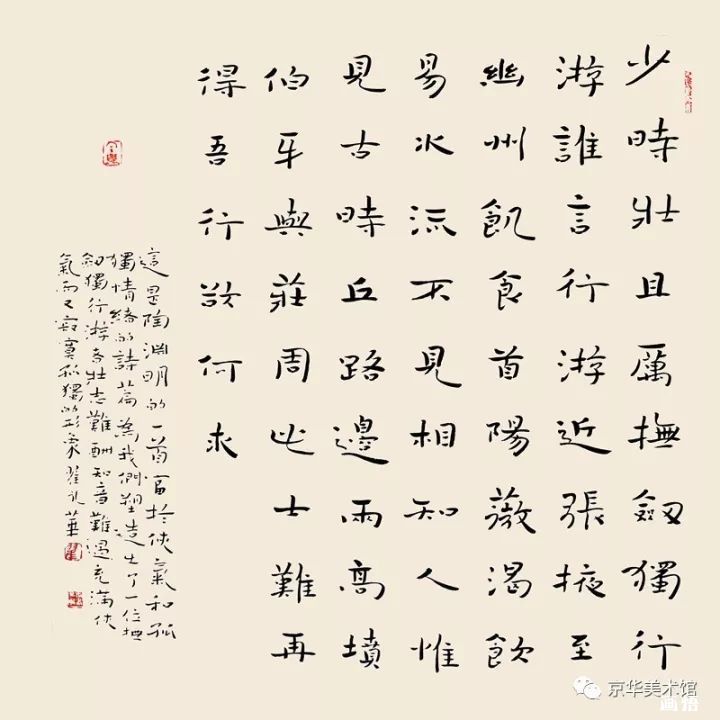 少時壯且厲撫劔獨行
游誰言行游近張掖至
幽州飢食首陽薇渴飲
易水流不見相知人惟
見古時丘路邊兩高墳
伯牙與莊周此士難再
得吾行欲何求
這是陶淵明的一首富於俠氣和孤
獨情緒的詩篇為我們塑造出了一位撫
劔獨行游者壯志難酬知音難遇充滿俠
氣而又寂寞孤獨的形象
京华美术馆